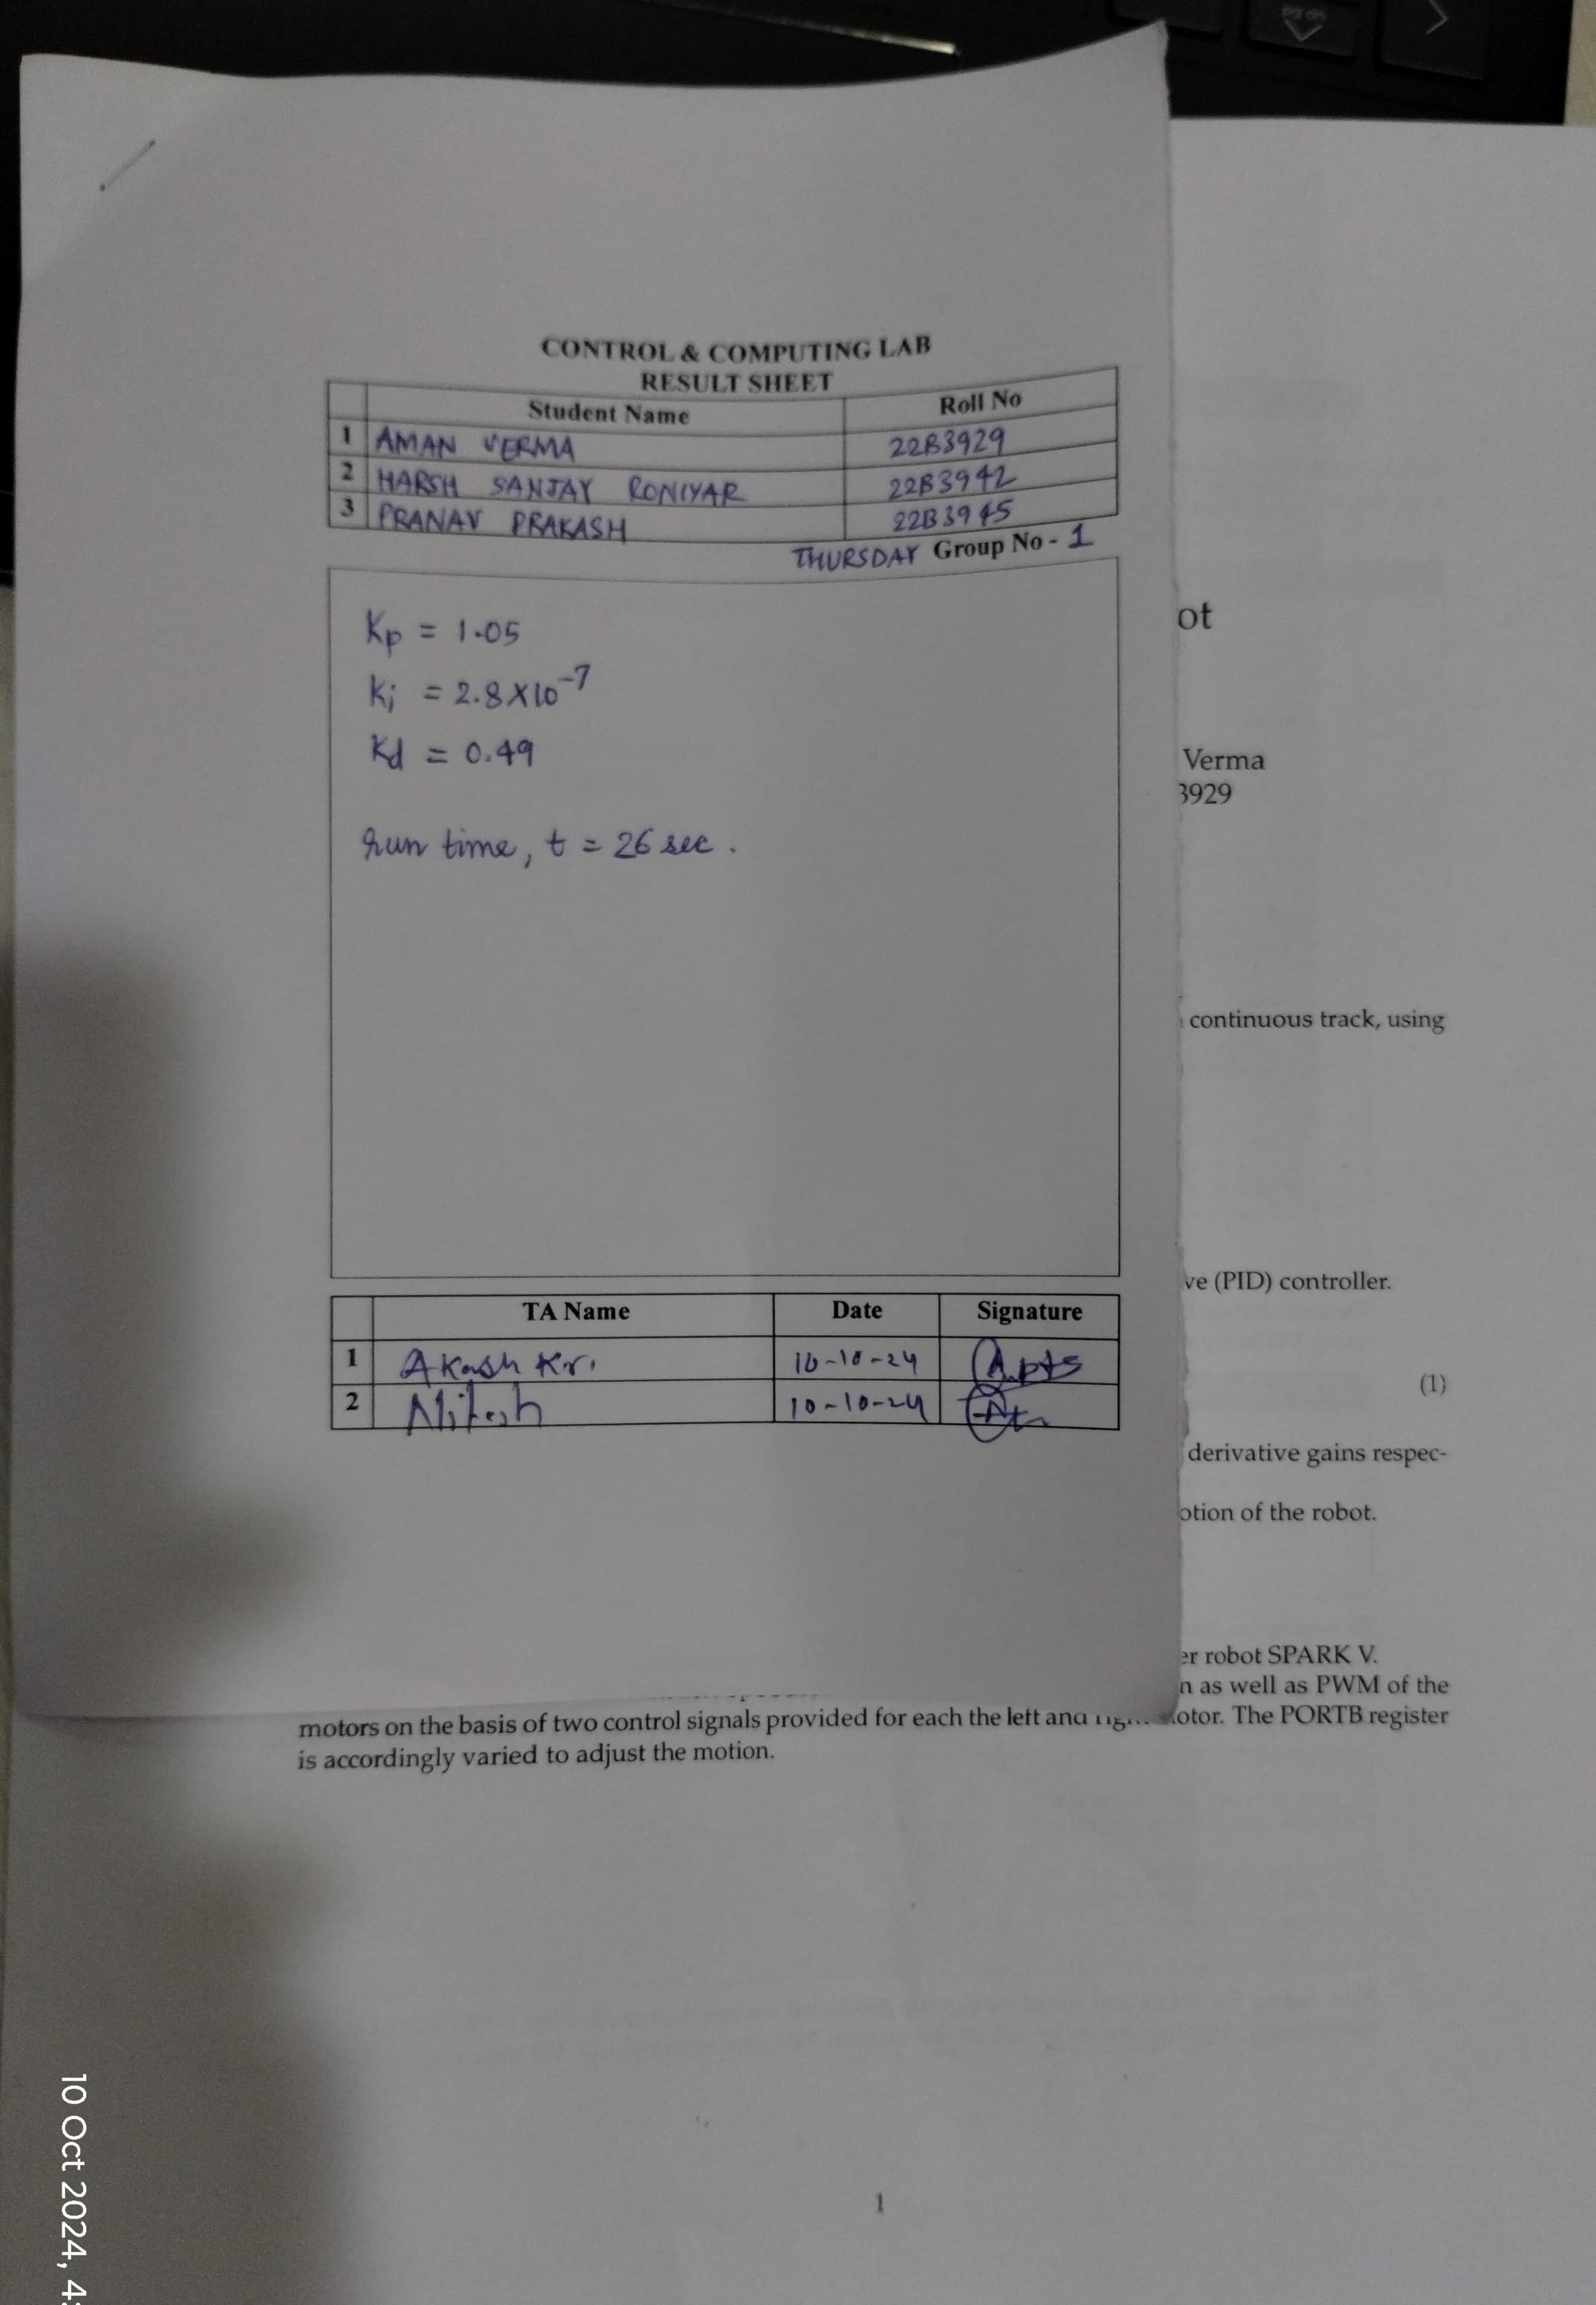 CONTROL & COMPUTING LAB
RESULT SHEET
Student Name Roll No
1 AMAN VERMA 22B3929
2 HARSH SANJAY RONIYAR 22B3942
3 PRANAV PRAKASH 22B3945
THURSDAY Group No - 1
Kp = 1.05
Ki = 2.8×10⁻⁷
Kd = 0.49
run time, t = 26 sec.
TA Name Date Signature
1 Akash Kr. 10-10-24
2 Nitesh 10-10-24
ot
Verma
3929
continuous track, using
ve (PID) controller.
(1)
derivative gains respec-
otion of the robot.
er robot SPARK V.
n as well as PWM of the
motors on the basis of two control signals provided for each the left and otor. The PORTB register
is accordingly varied to adjust the motion.
1
10 Oct 2024, 4: